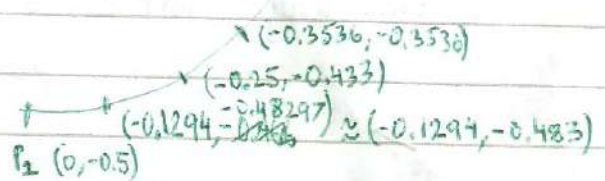 (-0.3536, -0.3536)
(-0.25, -0.433)
(-0.1294, -0.48297) ≃ (-0.1294, -0.483)
P1 (0, -0.5)